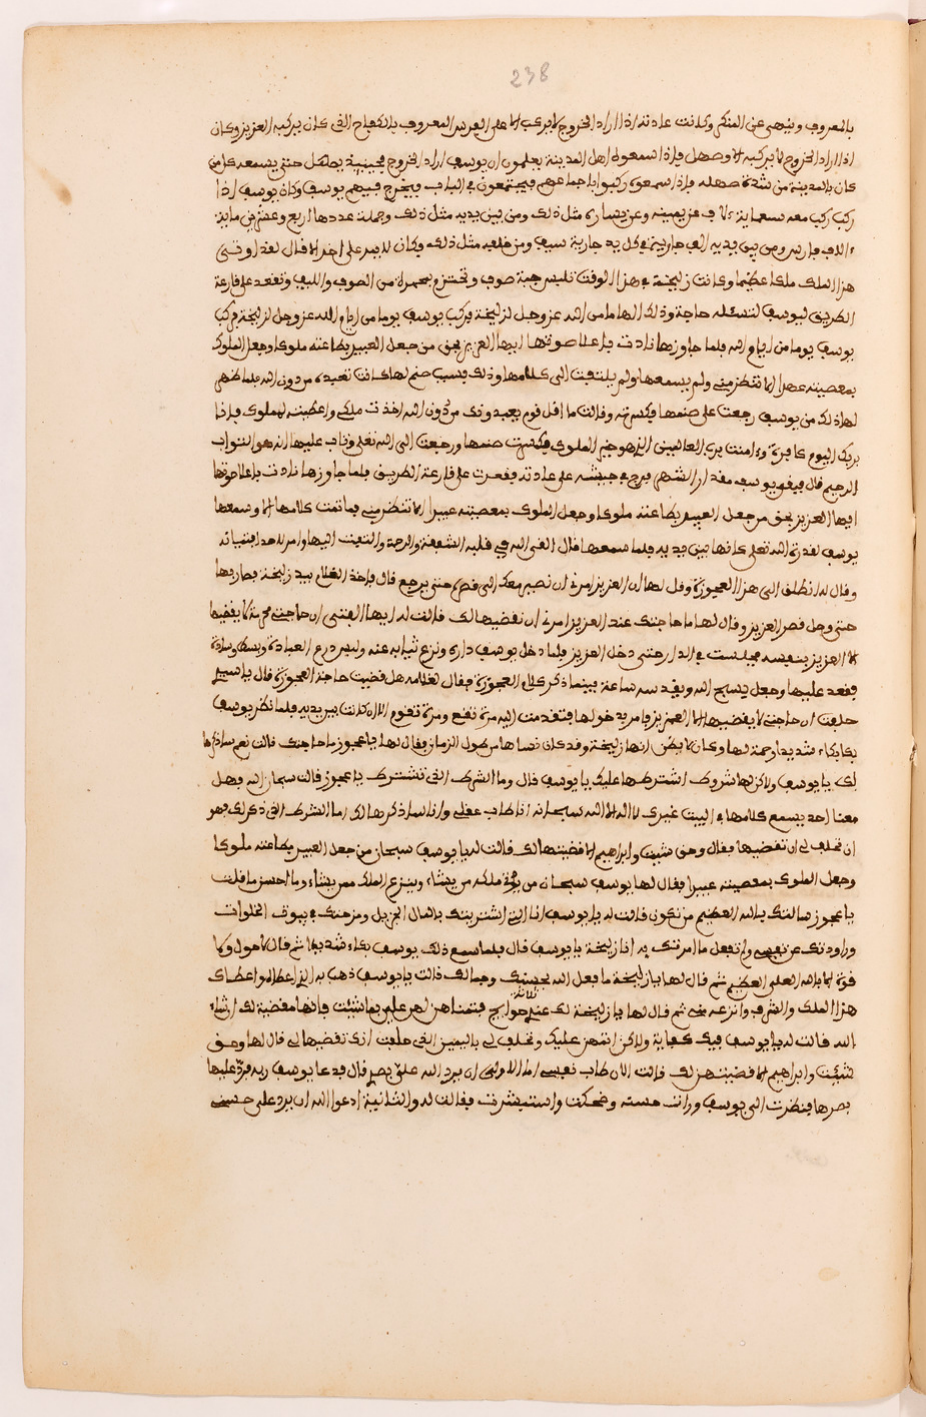 238
بالمعروف وينهى عن المنكر وكانت عادته اذا اراد الخروج لا يركب الا على الفرس المعروف التي كان يركبه العزيز وكان
اذا اراد الخروج لا يركبه الا وصهل فاذا سمعوه اهل المدينة يعلمون ان يوسف اراد الخروج حتى يسمعه كل من
كان بالمدينة من شدة صهله فاذا سمعوه ركبوا باجماعهم فيجتمعون في الباب فيخرج فيهم يوسف وكان يوسف اذا
ركب ركب معه عن يمينه وعن يساره مثل ذلك ومن بين يديه مثل ذلك وجملة عددها اربع وعشرين ماية
الاف فارس ومن بين يديه الف جارية في كل يد جارية سيف ومن خلفه مثل ذلك فكان لا يمر على احد الا قال لقد اوتى
هزا الملك ملكا عظيما وكانت زليخة في هزا الوقت تلبس جبة صوف وتحتزم من الصوف والليف وتقعد على قارعة
الطريق ليوسف لتسئله حاجة وذلك الهاما من الله عز وجل لزليخة فركب يوسف يوما من ايام الله عز وجل لزليخة
يوسف يوما من ايام الله فلما جاوزها نادت باعلا صوتها ايها العزيز بحق من جعل العبيد بطاعته ملوكا وجعل الملوك
بمعصيته الا تنظر مني ولم يسمعها ولم يلتفت الى كلامها وذلك بسبب صنم لها كانت تعبده من دون الله فلما ظهر
لها ذلك من يوسف رجعت على صنمها فكسرته وقالت ما اقل قوم يعبدونك من دون الله اخذت ملكي واعطيته لمملوك فانا
بربك اليوم كافرة وءامنت برب العالمين فكسرت صنمها ورجعت الى الله تعلى وتاب عليها انه هو التواب
الرحيم قال فبقي يوسف مقدار الشهر على عادته فقعدت على قارعة الطريق فلما جاوزها نادت باعلا صوتها
ايها العزيز بحق من جعل العبيد بطاعته ملوكا وجعل الملوك بمعصيته عبيدا الا تنظر مني فما تمت كلامها الا وسمعها
يوسف لقدرة الله تعلى كانها بين يديه فلما سمعها قال القى الله في قلبه الشفقة والرحمة والتفت اليها وامر لاحد
وقال له انطلق الى هزا العجوزة وقل لها ان العزيز امرني ان نصير معك الى قصره حتى يرجع قال فاخذ الغلام بيد زليخة فصار بها
حتى وصل قصر العزيز وقال لها ما حاجتك عند العزيز امرني ان نقضيها لك فقالت له ايها الفتى ان حاجتي لا يقضيها
الا العزيز بنفسه فجلست في الدار حتى دخل العزيز فلما دخل يوسف داره ونزع ثيابه عنه ولبس درع العبادة وبسط وسادة
فقعد عليها وجعل يسبح الله ويقدسه ساعة فبينما ذكر كلام العجوزة فقال لغلامه هل قضيت حاجة العجوزة قال يا سيدي
حلفت ان حاجتي لا يقضيها الا العزيز فامر بدخولها فتقدمت اليه مرة تقع ومرة تقوم الا ان كانت بين يديه فلما نظر يوسف
بكا بكاء شديدا رحمة لها وكان لا يظن انها زليخة وقد كان نساها من طول الزمان فقال لها يا عجوز ما حاجتك قالت نعم
لك يا يوسف ولاكن لها شروط اشترطها عليك يا يوسف قال وما الشرط التي تشترط يا عجوز قالت سبحان الله وهل
معنا احد يسمع كلامها في البيت غيري لا اله الا الله سبحانه انا طاب عقلي وانا ساذكرها لك اما الشرط التي ذكر لك فهو
ان تحلف لي ان تقضيها فقال وحق شيبت وابراهيم لا قضيتها لك قالت له يا يوسف سبحان من جعل العبيد بطاعته ملوكا
وجعل الملوك بمعصيته عبيدا فقال لها يوسف سبحان من ملكه من يشاء وينزع الملك ممن يشاء وما احسن ما قلت
يا عجوز سالتك بالله العظيم من تكون قالت له يا يوسف انا التي اشتريتك بالمال الجزيل ومزحتك في بيوت الخلوات
وراودتك عن نفسي ولم تفعل ما امرتك به انا زليخة يا يوسف قال فلما سمع ذلك يوسف بكاء شديدا ثم قال لا حول ولا
قوة الا بالله العلي العظيم ثم قال لها يا زليخة ما فعل الله بحسنك وجمالك قالت يا يوسف ذهب به الذي اعطاك
هزا الملك والشرف وانزعه مني ثم قال لها يا زليخة لك عندي ثلاث حوايج فتمناهن لهر علي بما شئت فانها مقضية لك ان شاء
الله قالت له يا يوسف فيك كفاية ولاكن عليك وتحلف لي باليمين التي حلفت تقضيها لي قال لها وحق
شيبت وابراهيم لا قضيتهن لك قالت الان طاب نفسي اما الاولى ان يرد الله علي بصري قال فدعا يوسف ربه فرد عليها
بصرها فنظرت الى يوسف ورات حسنه وضحكت واستبشرت فقالت له والثانية ادعو الله ان يرد علي حسني